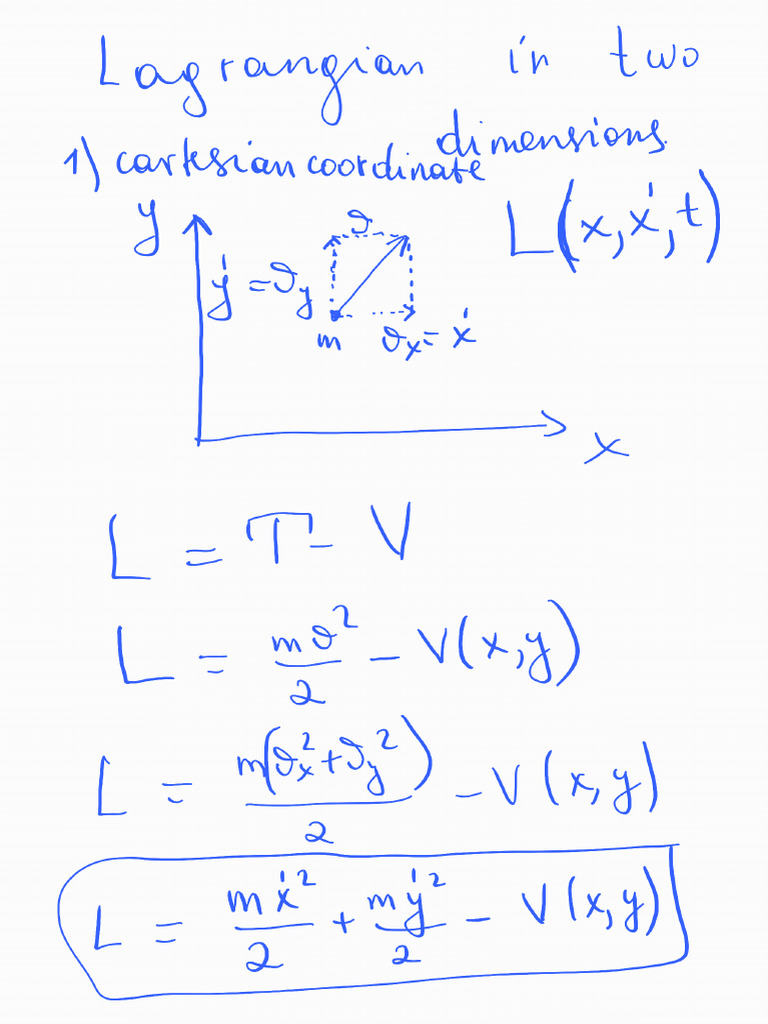 Lagrangian in two
dimensions.
1) cartesian coordinate
L(x, ẋ, t)
y
ϑ
ẏ = ϑy
m
ϑx = ẋ
x
L = T - V
L = mϑ²/2 - V(x,y)
L = m(ϑx² + ϑy²)/2 - V(x,y)
L = mẋ²/2 + mẏ²/2 - V(x,y)